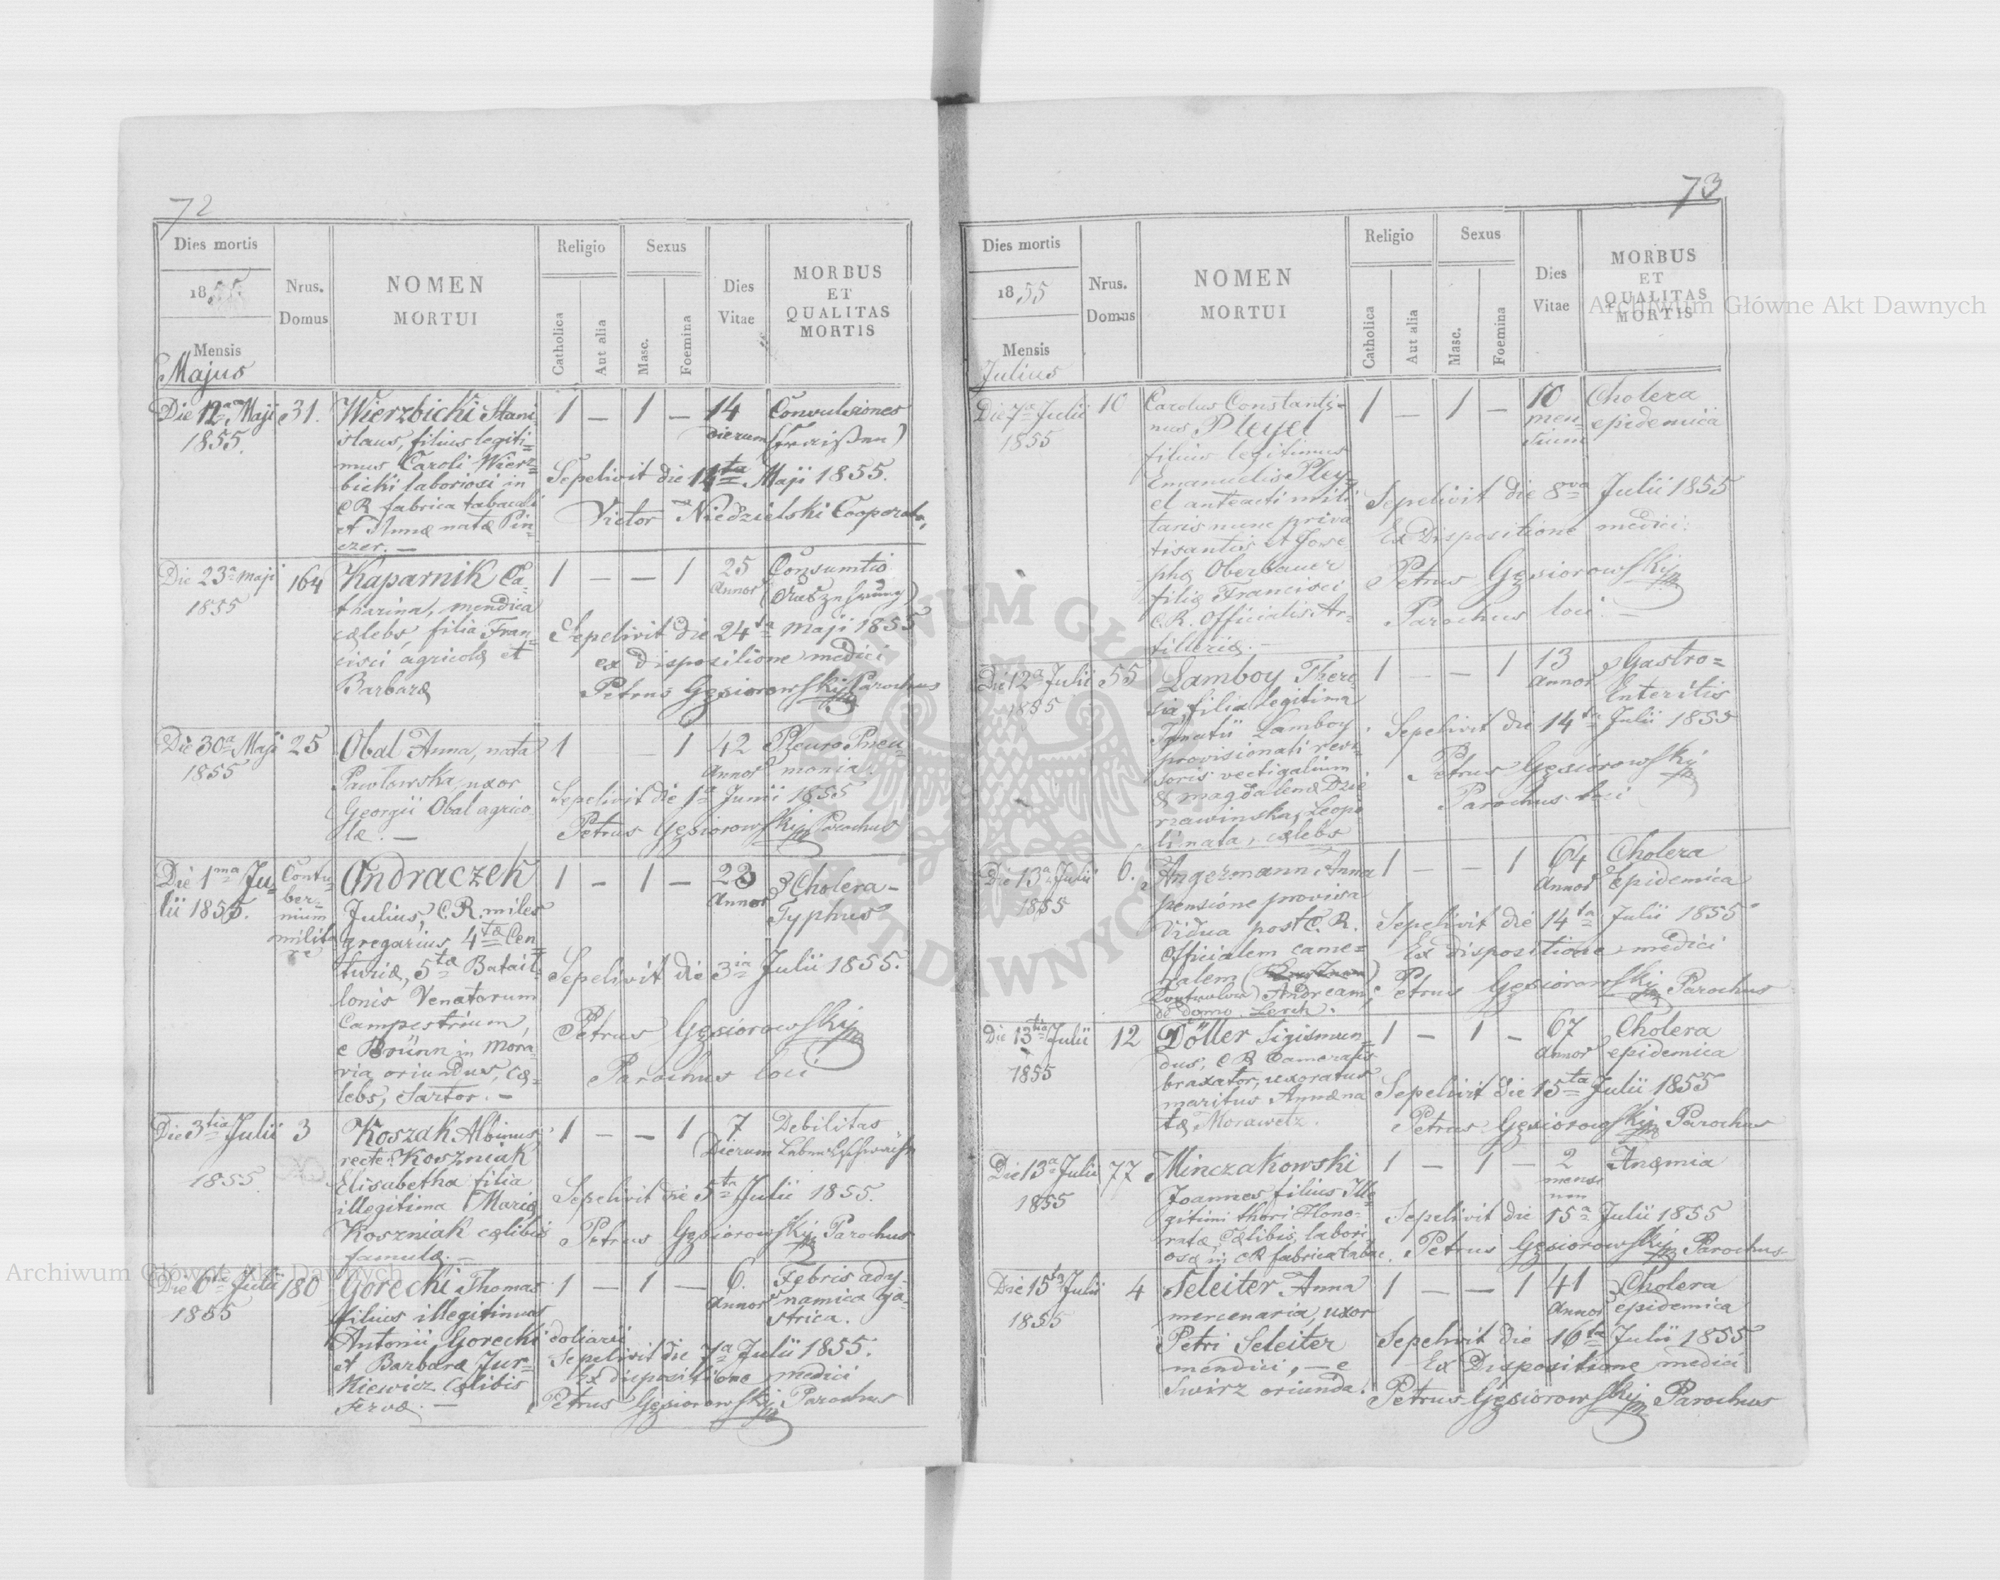 72
Dies mortis
1855
Mensis
Majus
Nrus.
Domus
NOMEN
MORTUI
Religio
Catholica
Aut alia
Sexus
Masc.
Foemina
Dies
Vitae
MORBUS
ET
QUALITAS
MORTIS
Die 12a Maji
1855.
31.
Wierzbicki Stani=
slaus, filius legiti=
mus Caroli Wierz=
bicki laboriosi in
C.R. fabrica tabacali
et Annæ natæ Pin
czer. —
1 — 1 —
14
dierum
Convulsiones
(Fraißen)
Sepelivit die 14ta Maji 1855.
Victor Niedzielski Cooperator
Die 23a Maji
1855
164
Kaparnik Ca=
tharina, mendica
cælebs, filia Fran=
cisci agricolæ et
Barbaræ
1 — — 1
25
Annor
Consumtio
(Auszehrung)
Sepelivit die 24ta Maji 1855
ex dispositione medici
Petrus Gęsiorowski Parochus
Die 30a Maji
1855
25
Obal Anna, nata
Pawłowska, uxor
Georgii Obal agrico
læ. —
1 — 1
42
Annor
Pleuro Pneu=
monia.
Sepelivit die 1a Junii 1855
Petrus Gęsiorowski Parochus
Die 1ma Ju=
lii 1855.
Contu=
ber=
nium
milita
re
Ondraczek
Julius, C.R. miles
gregarius 4tæ Cen
turiæ, 5tæ Batail=
lonis Venatorum
Campestrium,
e Brünn in Mora=
via oriundus, cæ=
lebs, Sartor. —
1 — 1 —
23
Annor
Cholera-
Typhus
Sepelivit die 3ia Julii 1855.
Petrus Gęsiorowski
Parochus loci
Die 3tia Julii
1855.
3
Koszak Albinus,
recte: Koszniak
Elisabetha filia
illegitima Mariæ
Koszniak cælibis
famulæ. —
1 — — 1
7
Dierum
Debilitas
Sepelivit die 5ta Julii 1855.
Petrus Gęsiorowski Parochus
Die 6ta Julii
1855
180
Gorecki Thomas
filius illegitimus
Antonii Gorecki doliarii
et Barbaræ Jur=
kiewicz cælibis
servæ. —
1 — 1 —
6.
Annor
Febris ady=
namica ga=
strica.
Sepelivit die 7a Julii 1855.
Ex dispositione medici
Petrus Gęsiorowski Parochus
73
Dies mortis
1855
Mensis
Julius
Nrus.
Domus
NOMEN
MORTUI
Religio
Catholica
Aut alia
Sexus
Masc.
Foemina
Dies
Vitae
MORBUS
ET
QUALITAS
MORTIS
Die 7a Julii
1855
10
Carolus Constanti=
nus Pleyel
filius legitimus
Emanuelis Pley=
el anteacti mili
taris nunc priva
tisantis et Jose
phæ Oberbauer
filiæ Francisci
C.R. Officialis Ar=
tilleriæ. —
1 — 1 —
10
men=
sium
Cholera
epidemica
Sepelivit die 8va Julii 1855
Ex Dispositione medici.
Petrus Gęsiorowski
Parochus loci
Die 12a Julii
1855
55
Lamboy There
sia, filia legitima
Ignatii Lamboy
provisionati revi=
soris vectigalium
& Magdalenæ Dzie
rzawinska, Leopo
li nata, cælebs
1 — — 1
13
Annor
Gastro=
Enteritis
Sepelivit die 14ta Julii 1855
Petrus Gęsiorowski
Parochus loci
Die 13a Julii
1855
6.
Angermann Anna
pensione provisa
Vidua post C.R.
Officialem came=
ralem
Andream,
de domo Lerch.
1 — — 1
64
Annor
Cholera
Epidemica
Sepelivit die 14ta Julii 1855
Ex dispositione medici
Petrus Gęsiorowski Parochus
Die 13tia Julii
1855
12
Döller Sigismun=
dus, C.R. Cameralis
braxator, uxoratus
maritus Annæ na
tæ Morawetz.
1 — 1 —
67
Annor
Cholera
epidemica
Sepelivit die 15ta Julii 1855
Petrus Gęsiorowski Parochus
Die 13a Julii
1855
77
Minczakowski
Joannes filius Ille=
gitimi thori Hono=
ratæ, Cælibis, labori
osæ in CR fabrica tabac.
1 — 1 —
2
mensi
Anæmia
Sepelivit die 15a Julii 1855
Petrus Gęsiorowski Parochus
Die 15ta Julii
1855
4
Seleiter Anna
mercenaria, uxor
Petri Seleiter
mendici, — e
Swirz oriunda.
1 — — 1
41
Annor
Cholera
epidemica
Sepelivit die 16ta Julii 1855
Ex Dispositione medici
Petrus Gęsiorowski Parochus
Archiwum Główne Akt Dawnych
Archiwum Główne Akt Dawnych
ARCHIWUM GŁÓWNE AKT DAWNYCH